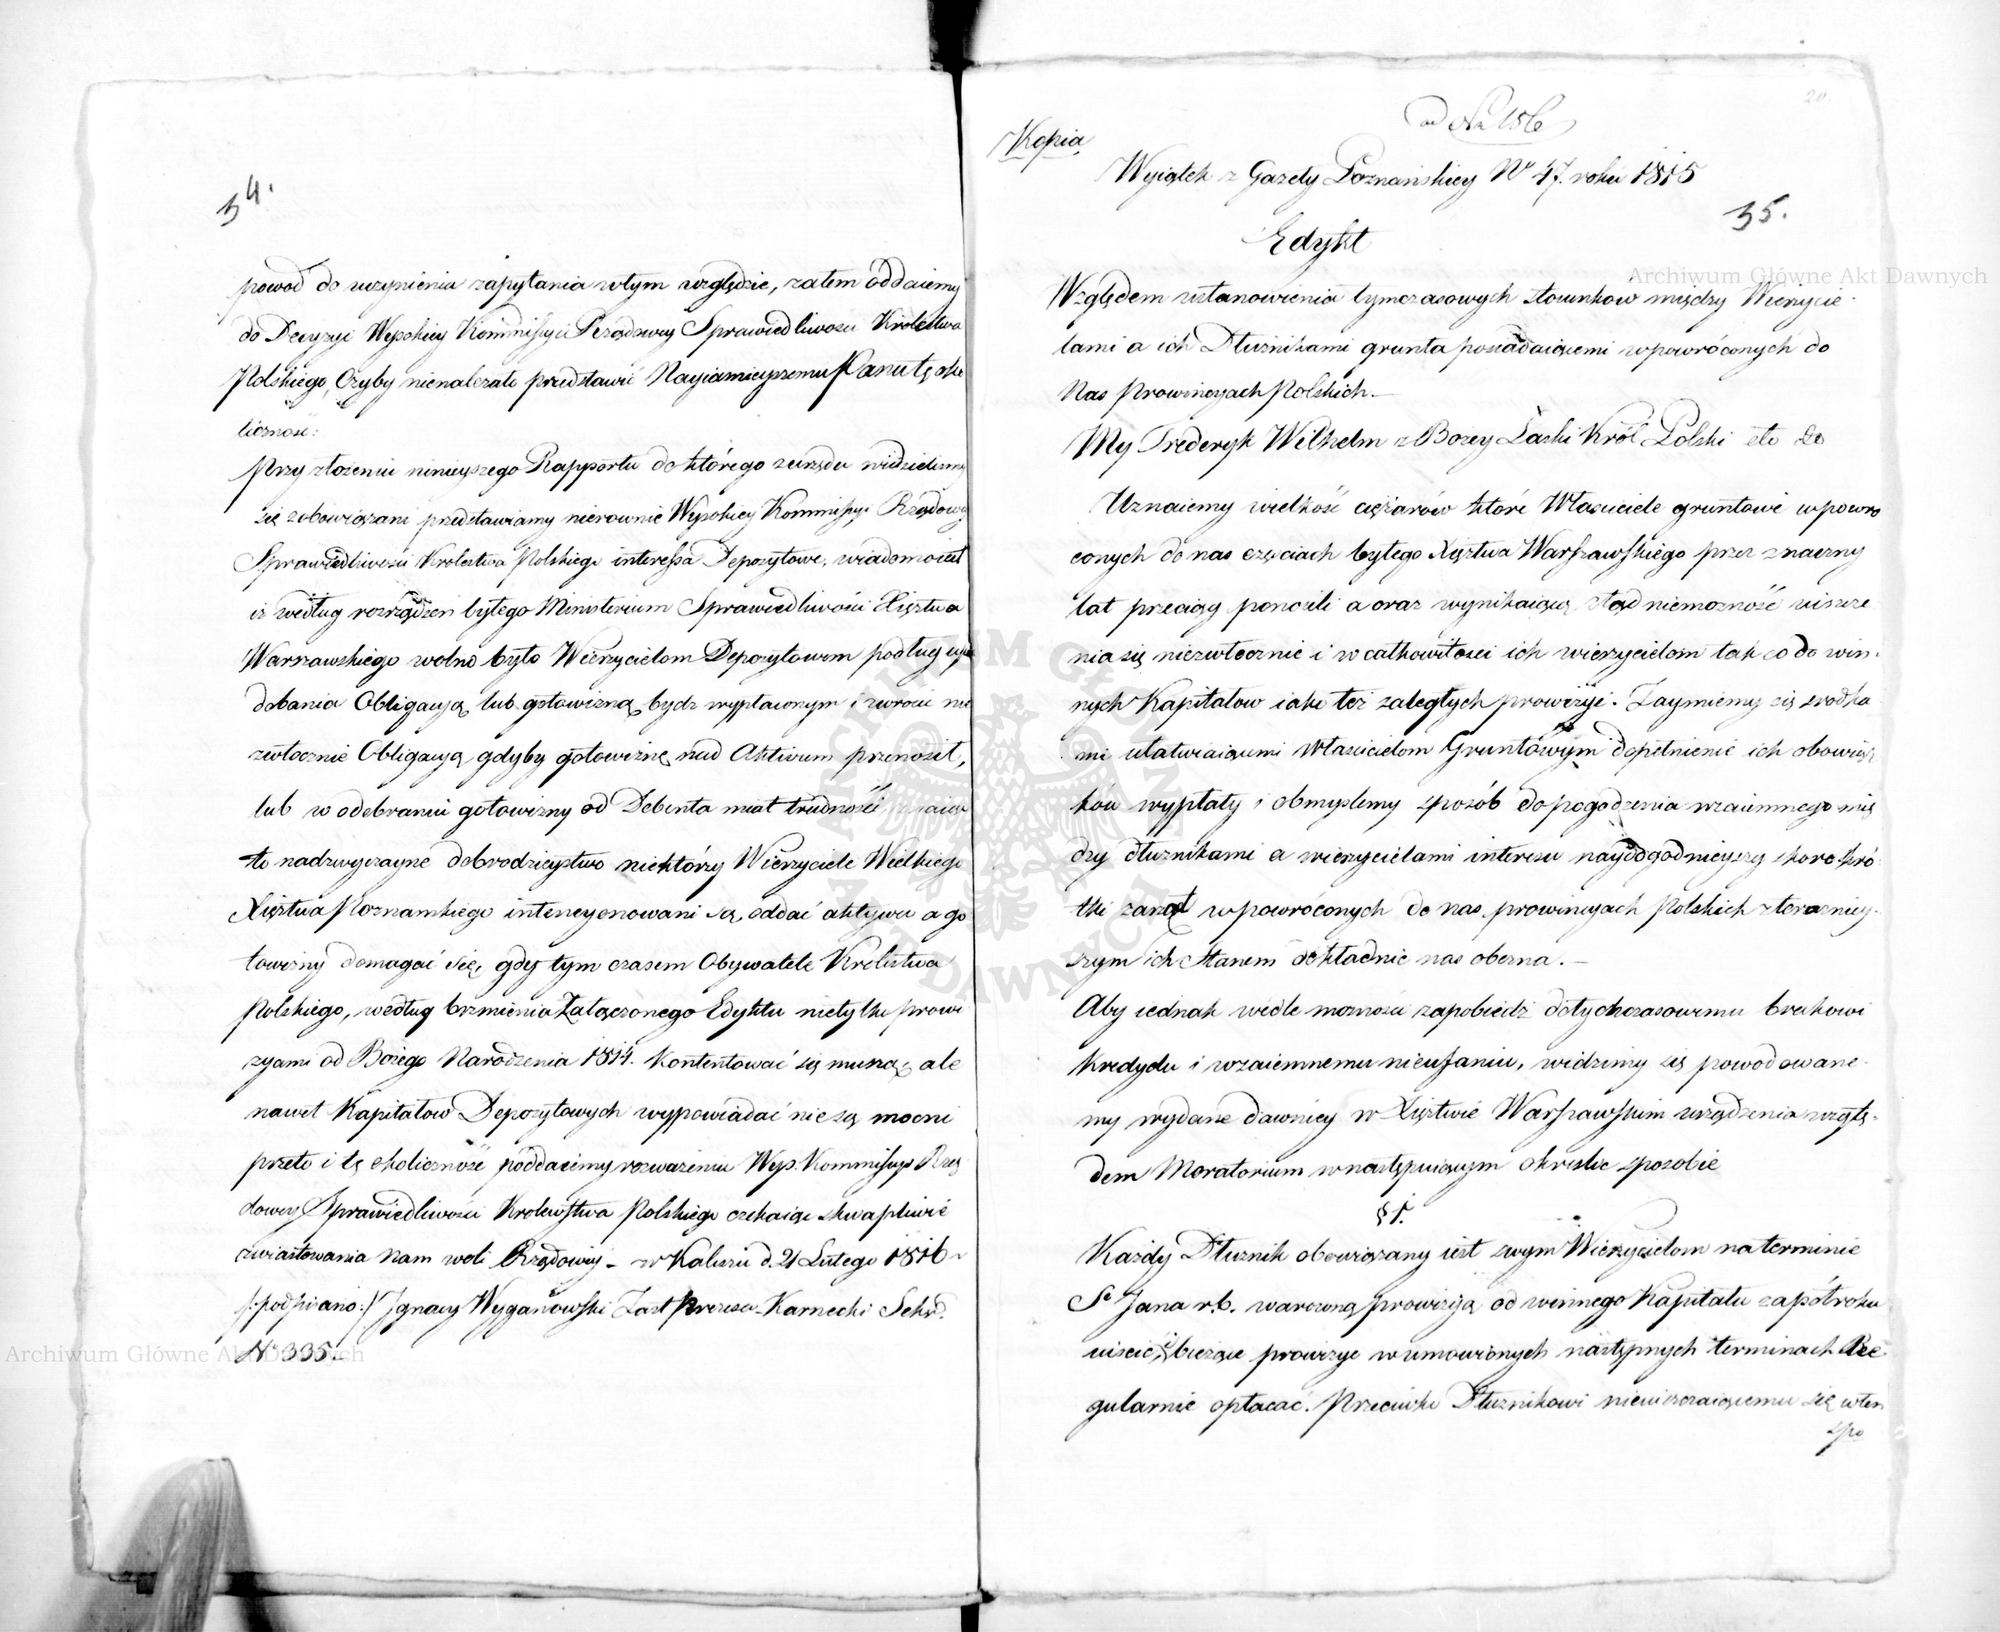 34.
powod do uczynienia zapytania wtym względzie, zatem oddaiemy
do Decyzyi Wysokiey Kommissyi Rządowey Sprawiedliwosci Królestwa
Polskiego, Czyby nienalezało przedstawić Nayiasnieyszemu Panu tę oko
liczność:
Przy złożeniu ninieyszego Rapportu do którego zurzędu widzieliśmy
się zobowiązani przedstawiamy nierownie Wysokiey Kommissyi Rządowey
Sprawiedliwości Krolestwa Polskiego interessa Depozytowe, wiadomo iest
iż według rozrządzeń byłego Ministerium Sprawiedliwości Xięstwa
Warszawskiego wolno było Wierzycielom Depozytowym podług upo
dobania Obligacyą lub gotowizną bydz wypłaconym i zwrocić nie
zwłocznie Obligacyą gdyby gotowiznę nad Aktivum przenosił,
lub w odebraniu gotowizny od Debenta miał trudności
to nadzwyczayne dobrodzieystwo niektórzy Wierzyciele Wielkiego
Xięstwa Poznanskiego intencyonowani są, oddać aktywa a go
towizny domagać się, gdy tym czasem Obywatele Królestwa
Polskiego, według brzmienia Załączonego Edyktu nietylko prowi
zyami od Bożego Narodzenia 1814. Kontentować się muszą, ale
nawet Kapitałow Depozytowych wypowiadać nie są mocni
przeto i tę okoliczność poddaiemy rozważeniu Wys. Kommissyi Rzą
dowey Sprawiedliwosci Krolewstwa Polskiego czekaiąc skwapliwie
zwiastowania Nam woli Rządowey - w Kaliszu d. 21 Lutego 1816 r
/:podpisano:/ Ignacy Wyganowski Zast Prezesa - Karnecki Sekr.
N. 335.
20.
ad Nr 156
Kopia
Wyiątek z Gazety Poznańskiey Nº 47. roku 1815
35.
Edykt
Względem ustanowienia tymczasowych stosunkow między Wierzycie-
lami a ich Dłużnikami grunta posiadaiącemi wpowróconych do
Nas Prowincyach Polskich.—
My Frederyk Wilhelm z Bozey Łaski Król Polski etc &c
Uznaiemy wielkość ciężarów które Właściciele gruntowi wpowro
conych do nas częściach byłego Xięstwa Warszawskiego przez znaczny
lat przeciąg ponosili a oraz wynikaiącą ztąd niemozność uiszcze
nia się niezwłocznie i w całkowitosci ich wierzycielom tak co do win-
nych Kapitałow iako też zaległych prowizyi. Zaymiemy się srodka
mi ułatwiaiącemi Właścicielom Gruntowym dopełnienie ich obowiąz
ków wypłaty i obmyslemy sposób do pogodzenia wzaiemnego mię
dzy dłużnikami a wierzycielami interesu naydogodnieyszy skoro Kró-
tki zarząd wpowróconych do nas prowincyach Polskich z teraźniey-
szym ich Stanem dokładnie nas obezna.—
Aby iednak wedle mozności zapobiedz dotychczasowemu brakowi
Kredytu i wzaiemnemu nieufaniu, widzimy się powodowane-
my wydane dawniey w Xięstwie Warszawskim urządzenia wzglę-
dem Moratorium w następuiącym okreslic sposobie
§ 1.
Każdy Dłużnik obowiązany iest swym Wierzycielom na terminie
Sº Jana r.b. warowną prowizyą od winnego Kapitału za pół roku
uiścić i bieżące prowizye w umowionych następnych terminach Re-
gularnie opłacać. Przeciwko Dłużnikowi nieuiszczaiącemu się w ten
spo
Archiwum Główne Akt Dawnych
Archiwum Główne Akt Dawnych
ARCHIWUM GŁÓWNE AKT DAWNYCH